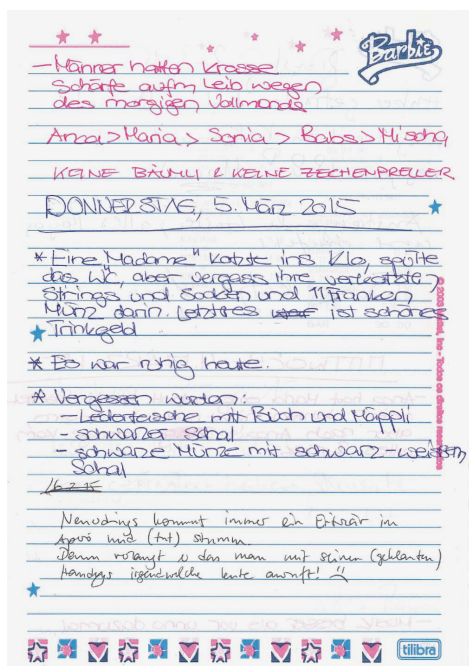 Barbie
- Männer hatten krasse
Schärfe aufm Leib wegen
des morgigen Vollmonds
Anca > Maria > Sonia > Babs > Mischa
KEINE BÄUMLI & KEINE ZECHENPRELLER
DONNERSTAG, 5. März 2015
* Eine Madame" kotzte ins Klo, spülte
das WC, aber vergass ihre verkotzte
Strings und Socken und 11 Franken
Münz darin. Letztes ist schönes
Trinkgeld
* Es war ruhig heute.
* Vergessen wurden:
- Ledertasche mit Buch und Mäppli
- schwarzer Schal
- schwarze Münze mit schwarz-weissem
Schal
16.2.15
Neuerdings kommt immer ein in
Apéro und (tut) stumm.
Dann verlangt er das man mit seinen (geklauten)
Handys irgendwelche Leute anruft!
© 2003 Mattel, Inc - Todos os direitos reservados
tilibra